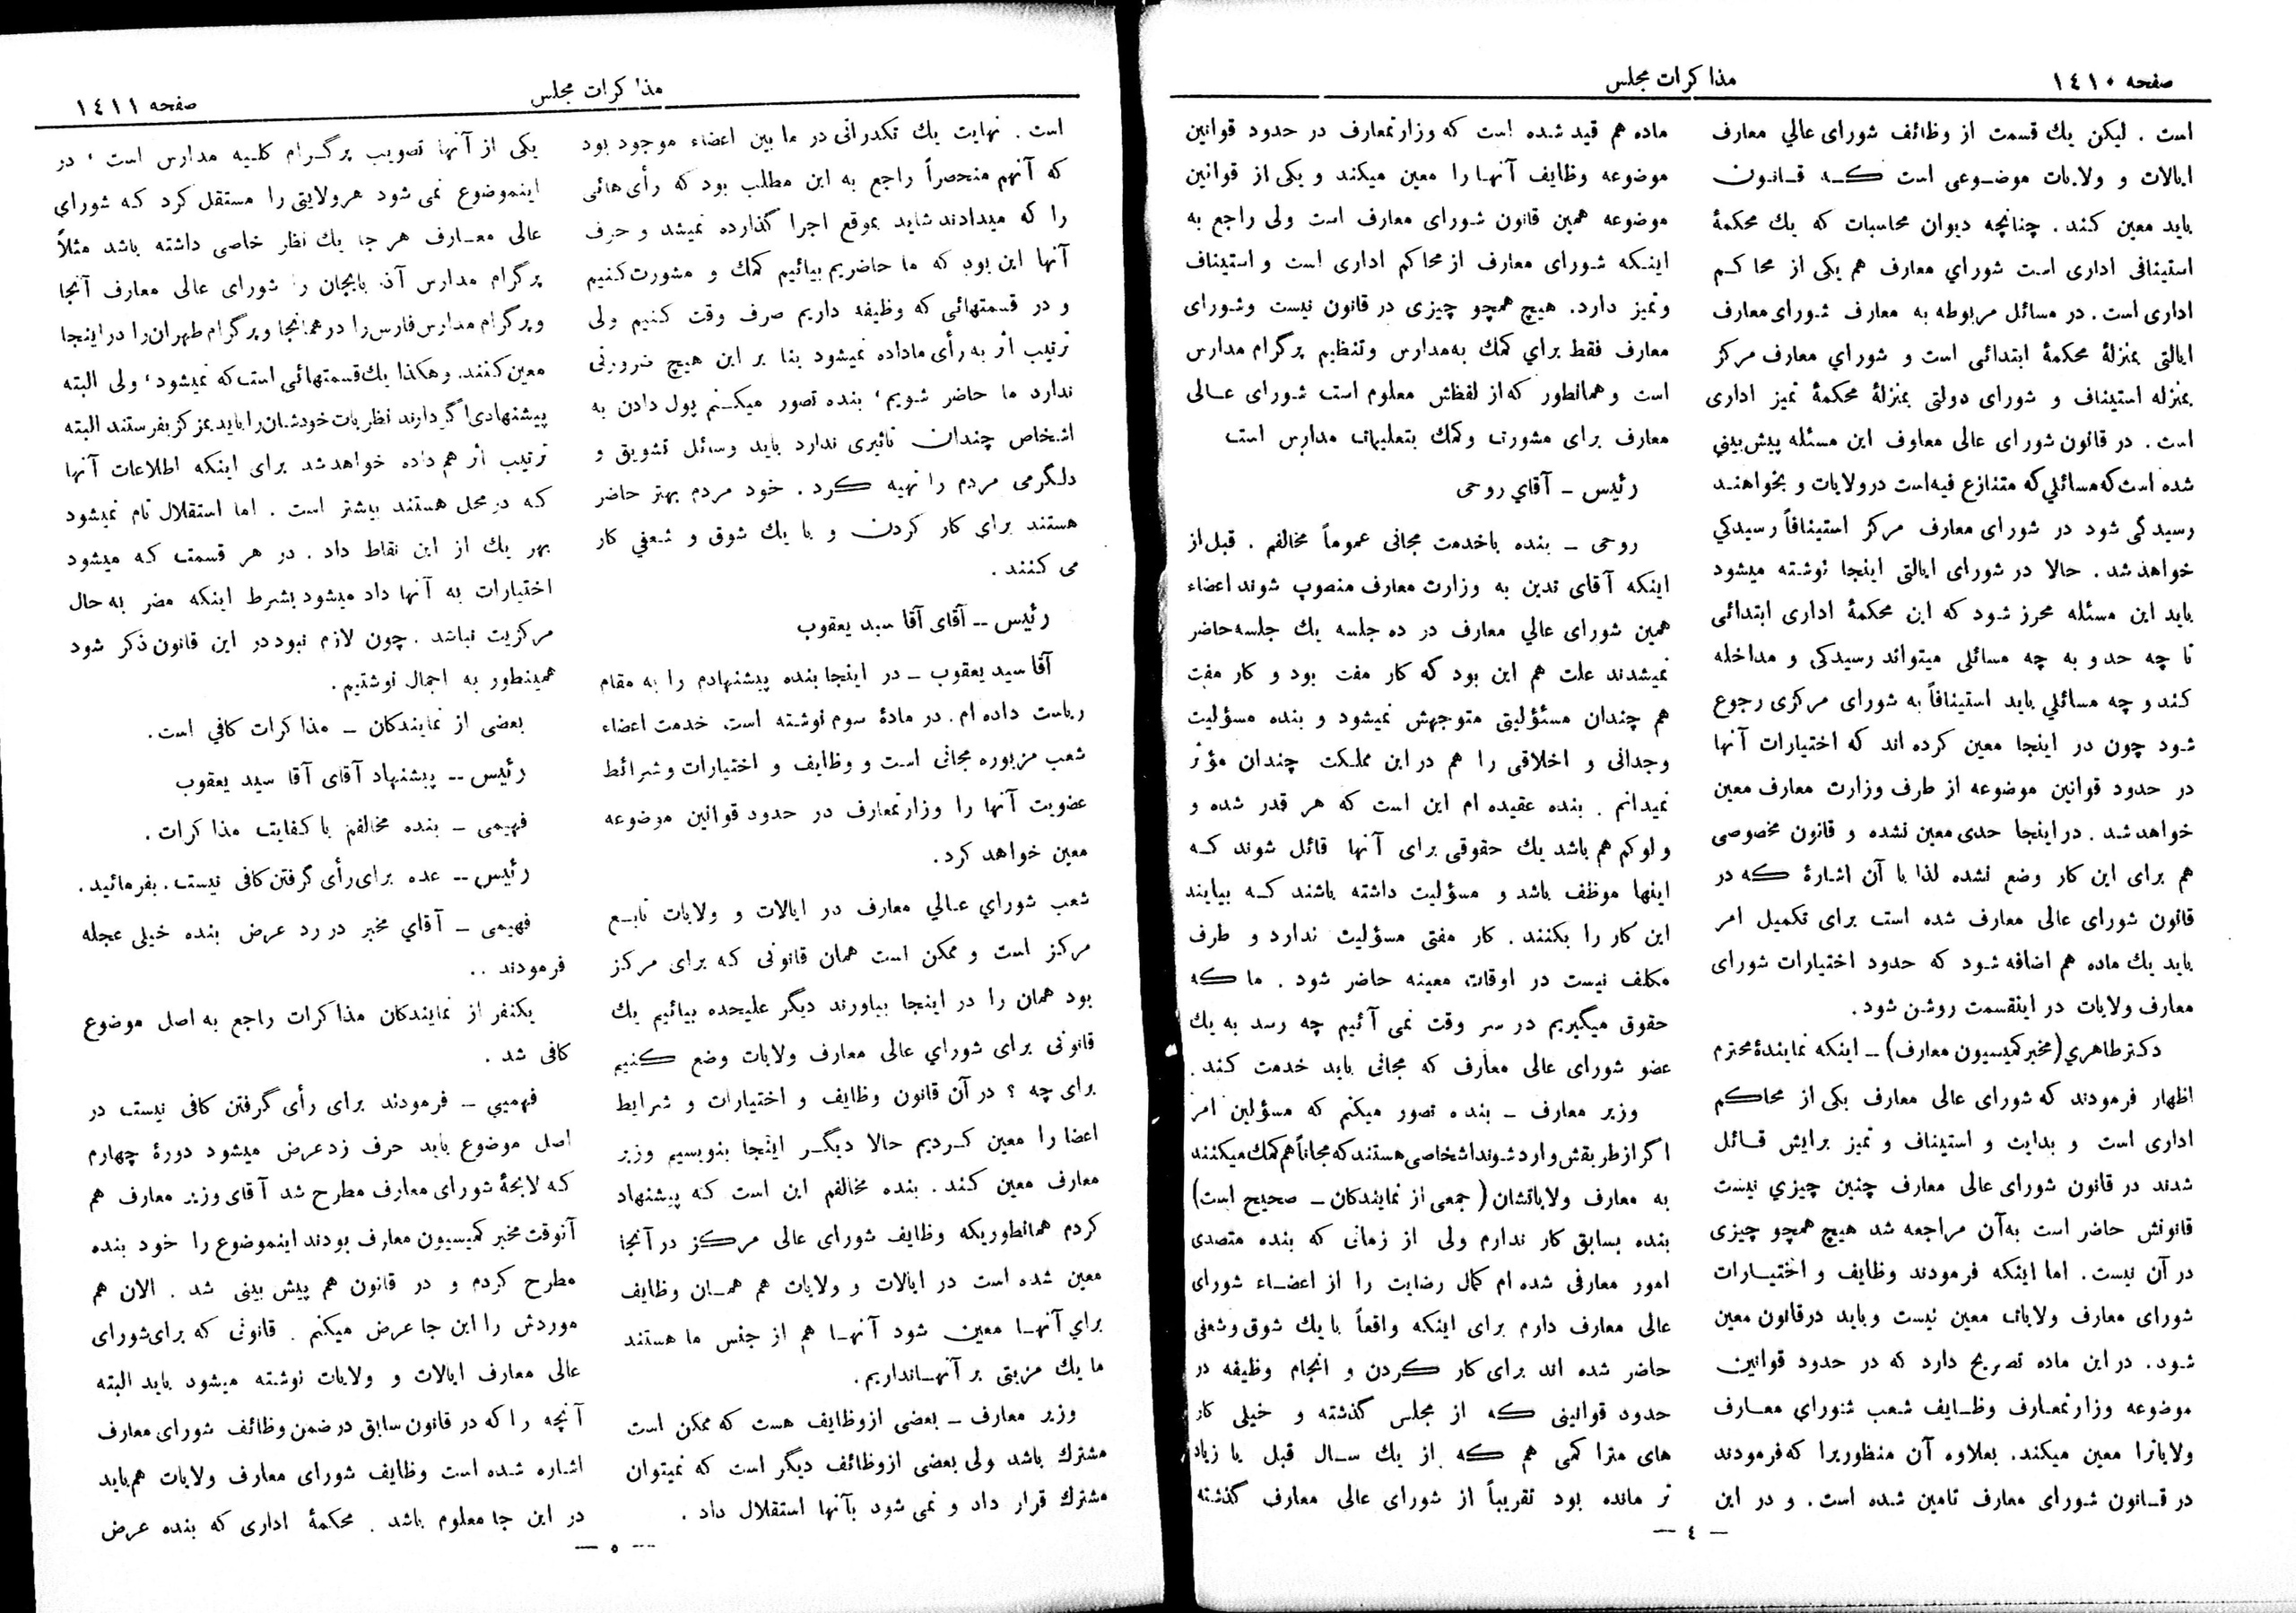 صفحه ۱٤۱۰
مذاکرات مجلس
است . لیکن یك قسمت از وظائف شورای عالي معارف
ایالات و ولایات موضوعی است که قانون
باید معین کند . چنانچه دیوان محاسبات که یك محکمهٔ
استینافی اداری است شوراي معارف هم یکی از محاکم
اداری است . در مسائل مربوطه به معارف شورای معارف
ایالتی بمنزلهٔ محکمهٔ ابتدائی است و شوراي معارف مرکز
بمنزله استیناف و شورای دولتی بمنزلهٔ محکمهٔ تمیز اداری
است . در قانون شورای عالی معاوف این مسئله پیش بیني
شده است که مسائلي که متنازع فیه است در ولایات و بخواهند
رسیدگی شود در شورای معارف مرکز استینافاً رسیدگي
خواهد شد . حالا در شورای ایالتی اینجا نوشته میشود
باید این مسئله محرز شود که این محکمهٔ اداری ابتدائی
تا چه حد و به چه مسائلی میتواند رسیدگی و مداخله
کند و چه مسائلي باید استینافاً به شورای مرکزی رجوع
شود چون در اینجا معین کرده اند که اختیارات آنها
در حدود قوانین موضوعه از طرف وزارت معارف معین
خواهد شد . در اینجا حدی معین نشده و قانون مخصوصی
هم برای این کار وضع نشده لذا با آن اشارهٔ که در
قانون شورای عالی معارف شده است برای تکمیل امر
باید یك ماده هم اضافه شود که حدود اختیارات شورای
معارف ولایات در اینقسمت روشن شود .
دکتر طاهري (مخبر کمیسیون معارف) ــ اینکه نمایندهٔ محترم
اظهار فرمودند که شورای عالی معارف یکی از محاکم
اداری است و بدایت و استیناف و تمیز برایش قائل
شدند در قانون شورای عالی معارف چنین چیزي نیست
قانونش حاضر است به آن مراجعه شد هیچ همچو چیزی
در آن نیست . اما اینکه فرمودند وظایف و اختیارات
شورای معارف ولایات معین نیست و باید در قانون معین
شود . در این ماده تصریح دارد که در حدود قوانین
موضوعه وزارتمعارف وظایف شعب شوراي معارف
ولایاترا معین میکند . بعلاوه آن منظوریرا که فرمودند
در قانون شورای معارف تامین شده است . و در این
ماده هم قید شده است که وزارتمعارف در حدود قوانین
موضوعه وظایف آنها را معین میکند و یکی از قوانین
موضوعه همین قانون شورای معارف است ولی راجع به
اینکه شورای معارف از محاکم اداری است و استیناف
و تمیز دارد . هیچ همچو چیزی در قانون نیست و شورای
معارف فقط براي کمك به مدارس و تنظیم پرگرام مدارس
است و همانطور که از لفظش معلوم است شورای عالی
معارف برای مشورت و کمك بتعلیمات مدارس است
رئیس ــ آقاي روحی
روحی ــ بنده باخدمت مجانی عموماً مخالفم . قبل از
اینکه آقای تدین به وزارت معارف منصوب شوند اعضاء
همین شورای عالي معارف در ده جلسه یك جلسه حاضر
نمیشدند علت هم این بود که کار مفت بود و کار مفت
هم چندان مسئولیتی متوجهش نمیشود و بنده مسؤلیت
وجدانی و اخلاقی را هم در این مملکت چندان مؤثر
نمیدانم . بنده عقیده ام این است که هر قدر شده و
ولو کم هم باشد یك حقوقی برای آنها قائل شوند که
اینها موظف باشد و مسؤلیت داشته باشند که بیایند
این کار را بکنند . کار مفتی مسؤلیت ندارد و طرف
مکلف نیست در اوقات معینه حاضر شود . ما که
حقوق میگیریم در سر وقت نمی آئیم چه رسد به یك
عضو شورای عالی معارف که مجانی باید خدمت کند .
وزیر معارف ــ بنده تصور میکنم که مسؤلین امر
اگر از طریقش وارد شوند اشخاصی هستند که مجاناً هم کمك میکنند
به معارف ولایاتشان ( جمعی از نمایندکان ــ صحیح است )
بنده بسابق کار ندارم ولی از زمانی که بنده متصدی
امور معارفی شده ام کمال رضایت را از اعضاء شورای
عالی معارف دارم برای اینکه واقعاً با یك شوق و شعفی
حاضر شده اند برای کار کردن و انجام وظیفه در
حدود قوانینی که از مجلس گذشته و خیلی کار
های متراکمی هم که از یك سال قبل یا زیاد
تر مانده بود تقریباً از شورای عالی معارف گذشته
— ٤ —
صفحه ۱٤۱۱
مذاکرات مجلس
است . نهایت یك تکدراتی در ما بین اعضاء موجود بود
که آنهم منحصراً راجع به این مطلب بود که رأی هائی
را که میدادند شاید بموقع اجرا گذارده نمیشد و حرف
آنها این بود که ما حاضریم بیائیم کمك و مشورت کنیم
و در قسمتهائی که وظیفه داریم صرف وقت کنیم ولی
ترتیب اثر به رأی ماداده نمیشود بنا بر این هیچ ضرورتی
ندارد ما حاضر شویم ، بنده تصور میکنم پول دادن به
اشخاص چندان تاثیری ندارد باید وسائل تشویق و
دلگرمی مردم را تهیه کرد . خود مردم بهتر حاضر
هستند برای کار کردن و با یك شوق و شعفي کار
می کنند .
رئیس ــ آقای آقا سید یعقوب
آقا سید یعقوب ــ در اینجا بنده پیشنهادم را به مقام
ریاست داده ام . در مادهٔ سوم نوشته است خدمت اعضاء
شعب مزبوره مجانی است و وظایف و اختیارات و شرائط
عضویت آنها را وزارتمعارف در حدود قوانین موضوعه
معین خواهد کرد .
شعب شوراي عالي معارف در ایالات و ولایات تابع
مرکز است و ممکن است همان قانونی که برای مرکز
بود همان را در اینجا بیاورند دیگر علیحده بیائیم یك
قانونی برای شوراي عالی معارف ولایات وضع کنیم
برای چه ؟ در آن قانون وظایف و اختیارات و شرایط
اعضا را معین کردیم حالا دیگر اینجا بنویسیم وزیر
معارف معین کند . بنده مخالفم این است که پیشنهاد
کردم همانطوریکه وظایف شورای عالی مرکز در آنجا
معین شده است در ایالات و ولایات هم همان وظایف
براي آنها معین شود آنها هم از جنس ما هستند
ما یك مزیتی بر آنها نداریم .
وزیر معارف ــ بعضی از وظایف هست که ممکن است
مشترك باشد ولی بعضی از وظائف دیگر است که نمیتوان
مشترك قرار داد و نمی شود بآنها استقلال داد .
یکی از آنها تصویب پرگرام کلیه مدارس است ، در
اینموضوع نمی شود هر ولایتی را مستقل کرد که شورای
عالی معارف هر جا یك نظر خاصی داشته باشد مثلاً
پرگرام مدارس آذربایجان را شورای عالی معارف آنجا
و پرگرام مدارس فارس را در همانجا و پرگرام طهران را در اینجا
معین کنند . و هکذا یك قسمتهائی است که نمیشود ، ولی البته
پیشنهادی اگر دارند نظریات خودشان را باید بمرکز بفرستند البته
ترتیب اثر هم داده خواهد شد برای اینکه اطلاعات آنها
که در محل هستند بیشتر است . اما استقلال تام نمیشود
بهر یك از این نقاط داد . در هر قسمت که میشود
اختیارات به آنها داد میشود بشرط اینکه مضر به حال
مرکزیت نباشد . چون لازم نبود در این قانون ذکر شود
همینطور به اجمال نوشتیم .
بعضی از نمایندکان ــ مذاکرات کافي است .
رئیس ــ پیشنهاد آقای آقا سید یعقوب
فهیمی ــ بنده مخالفم با کفایت مذاکرات .
رئیس ــ عده برای رأی گرفتن کافی نیست . بفرمائید .
فهیمی ــ آقاي مخبر در رد عرض بنده خیلی عجله
فرمودند ..
یکنفر از نمایندکان مذاکرات راجع به اصل موضوع
کافی شد .
فهیمي ــ فرمودند برای رأی گرفتن کافی نیست در
اصل موضوع باید حرف زد عرض میشود دورهٔ چهارم
که لایحهٔ شورای معارف مطرح شد آقای وزیر معارف هم
آنوقت مخبر کمیسیون معارف بودند اینموضوع را خود بنده
مطرح کردم و در قانون هم پیش بینی شد . الان هم
موردش را این جا عرض میکنم . قانونی که برای شورای
عالی معارف ایالات و ولایات نوشته میشود باید البته
آنچه را که در قانون سابق در ضمن وظائف شورای معارف
اشاره شده است وظایف شورای معارف ولایات هم باید
در این جا معلوم باشد . محکمهٔ اداری که بنده عرض
— ٥ —